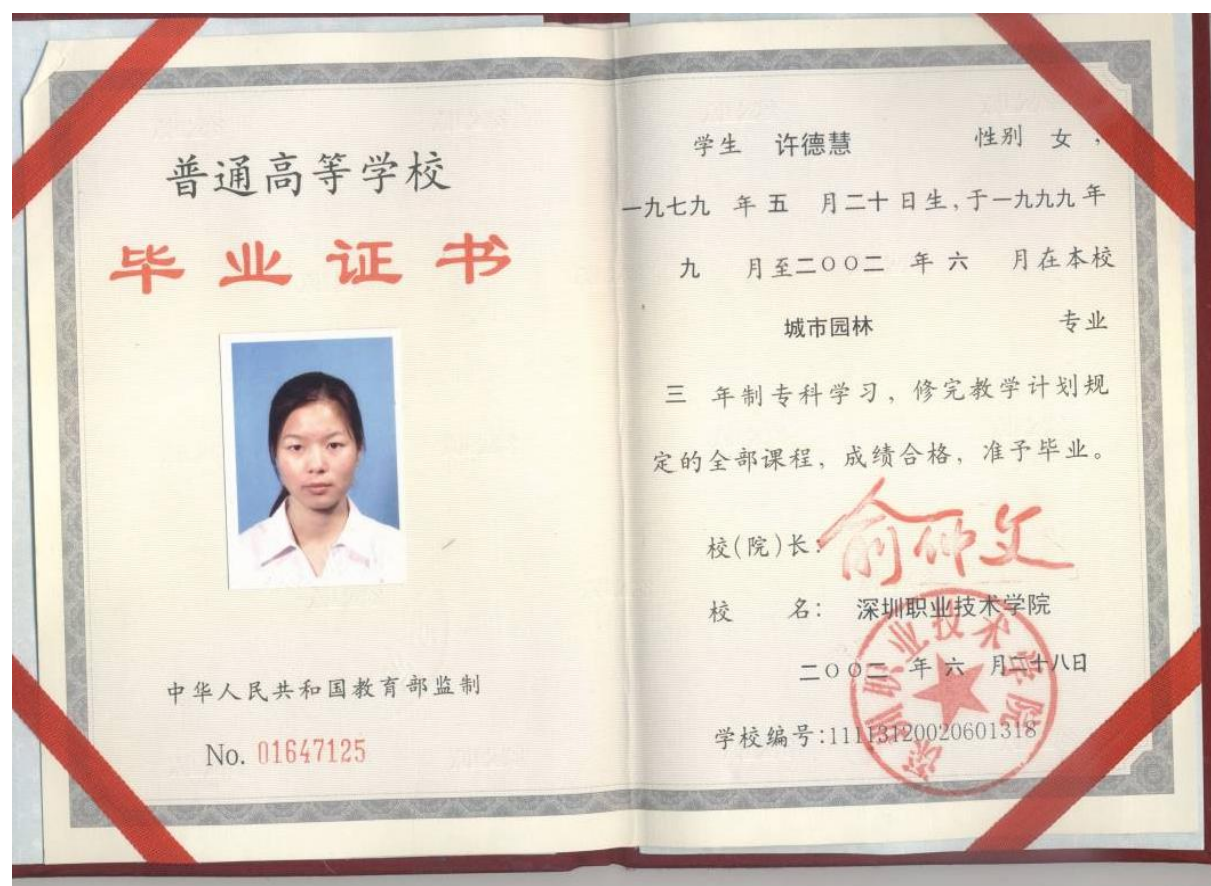 普通高等学校
毕业证书
中华人民共和国教育部监制
No. 01647125
学生 许德慧 性别 女,
一九七九 年 五 月二十日生,于一九九九年
九 月至二〇〇二 年 六 月在本校
城市园林 专业
三 年制专科学习,修完教学计划规
定的全部课程,成绩合格,准予毕业。
校(院)长:俞仲文
校 名: 深圳职业技术学院
二〇〇二 年 六 月二十八日
学校编号:11113120020601318
深圳职业技术学院